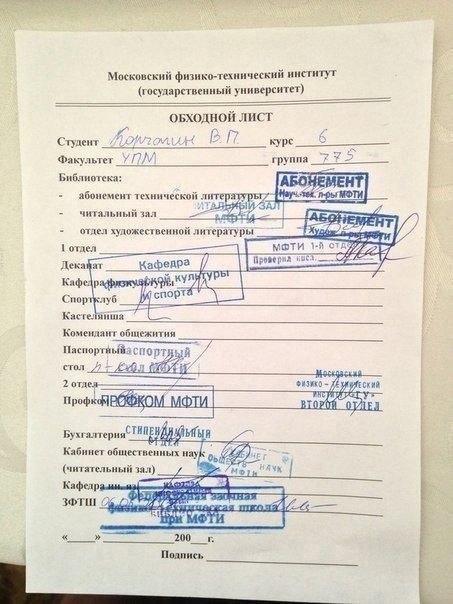 Московский физико-технический институт
(государственный университет)
ОБХОДНОЙ ЛИСТ
Студент Корчагин В.П. курс 6
Факультет УПМ группа 775
Библиотека:
- абонемент технической литературы
АБОНЕМЕНТ
Науч.-тех. л-ры МФТИ
- читальный зал
ЧИТАЛЬНЫЙ ЗАЛ
МФТИ
- отдел художественной литературы
АБОНЕМЕНТ
Худож. л-ры МФТИ
1 отдел
МФТИ 1-й ОТДЕЛ
Проверил
Деканат
Кафедра физкультуры
Кафедра
физической культуры
и спорта
Спортклуб
Кастелянша
Комендант общежития
Паспортный
стол
Паспортный
стол МФТИ
2 отдел
Московский
физико-технический
институт
ВТОРОЙ ОТДЕЛ
Профком
ПРОФКОМ МФТИ
Бухгалтерия
СТИПЕНДИАЛЬНЫЙ
ОТДЕЛ
Кабинет общественных наук
(читательный зал)
КАБИНЕТ
ОБЩЕСТВ. НАУК
МФТИ
Кафедра ин. яз
КАФЕДРА
ЗФТШ
Федеральная заочная
физико-техническая школа
при МФТИ
«____» ______ 200___г.
Подпись